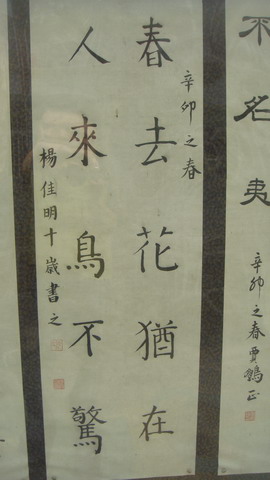 不名夷
辛卯之春賈鶴正
辛卯之春
春去花猶在
人來鳥不驚
楊佳明十歲書之